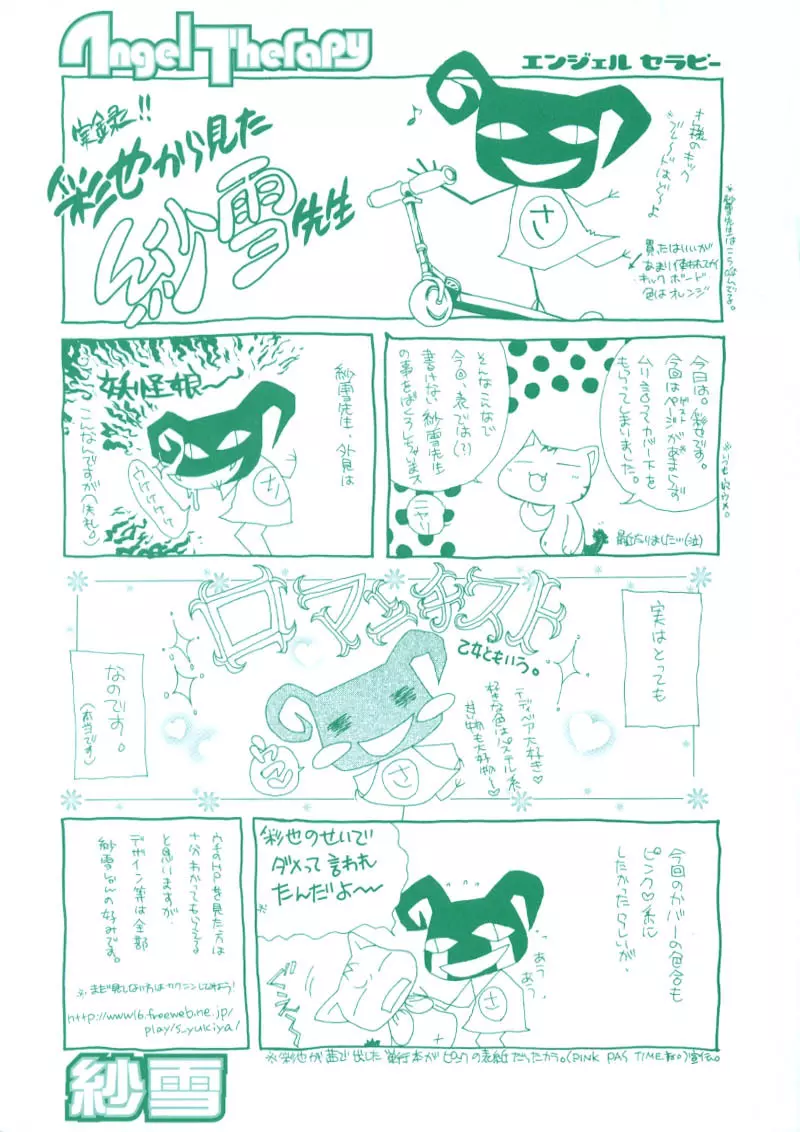 Angel Therapy
エンジェル セラピー
実録!!
彩也から見た
紗雪先生
さ
買ったはいいが
あまり使われてない
キックボード
色はオレンジ
今日は。彩也です。
今回はページがあまらず
ムリ言ってカバー下を
もらってしまいました。
そんなこんなで
今回、表では(?)
書けない紗雪先生
の事をばくろしちゃいまス
ニヤリ
紗雪先生、外見は
妖怪娘〜〜
さ
ウケケケケケ
こんなんですが(失礼。)
実はとっても
ロマンチスト
乙女ともいう。
テディベア大好き♡
好きな色はパステル系
甘い物も大好物〜♡
さ
なのです。
(本当です)
今回のカバーの色合も
ピンク♡系に
したかったらしいが、
彩也のせいで
ダメって言われ
たんだよ〜〜
あう
あう
さ
※彩也が茜で出した単行本がピンクの表紙だったカラ。(PINK PAS TIME
ウチのHPを見た方は
十分わかってもらえてる
と思いますが、
デザイン等は全部
紗雪しゃんの好みです。
※まだ見てない方はカクニンしてみよう!
http://www16.freeweb.ne.jp/
play/s_yukiya/
紗雪